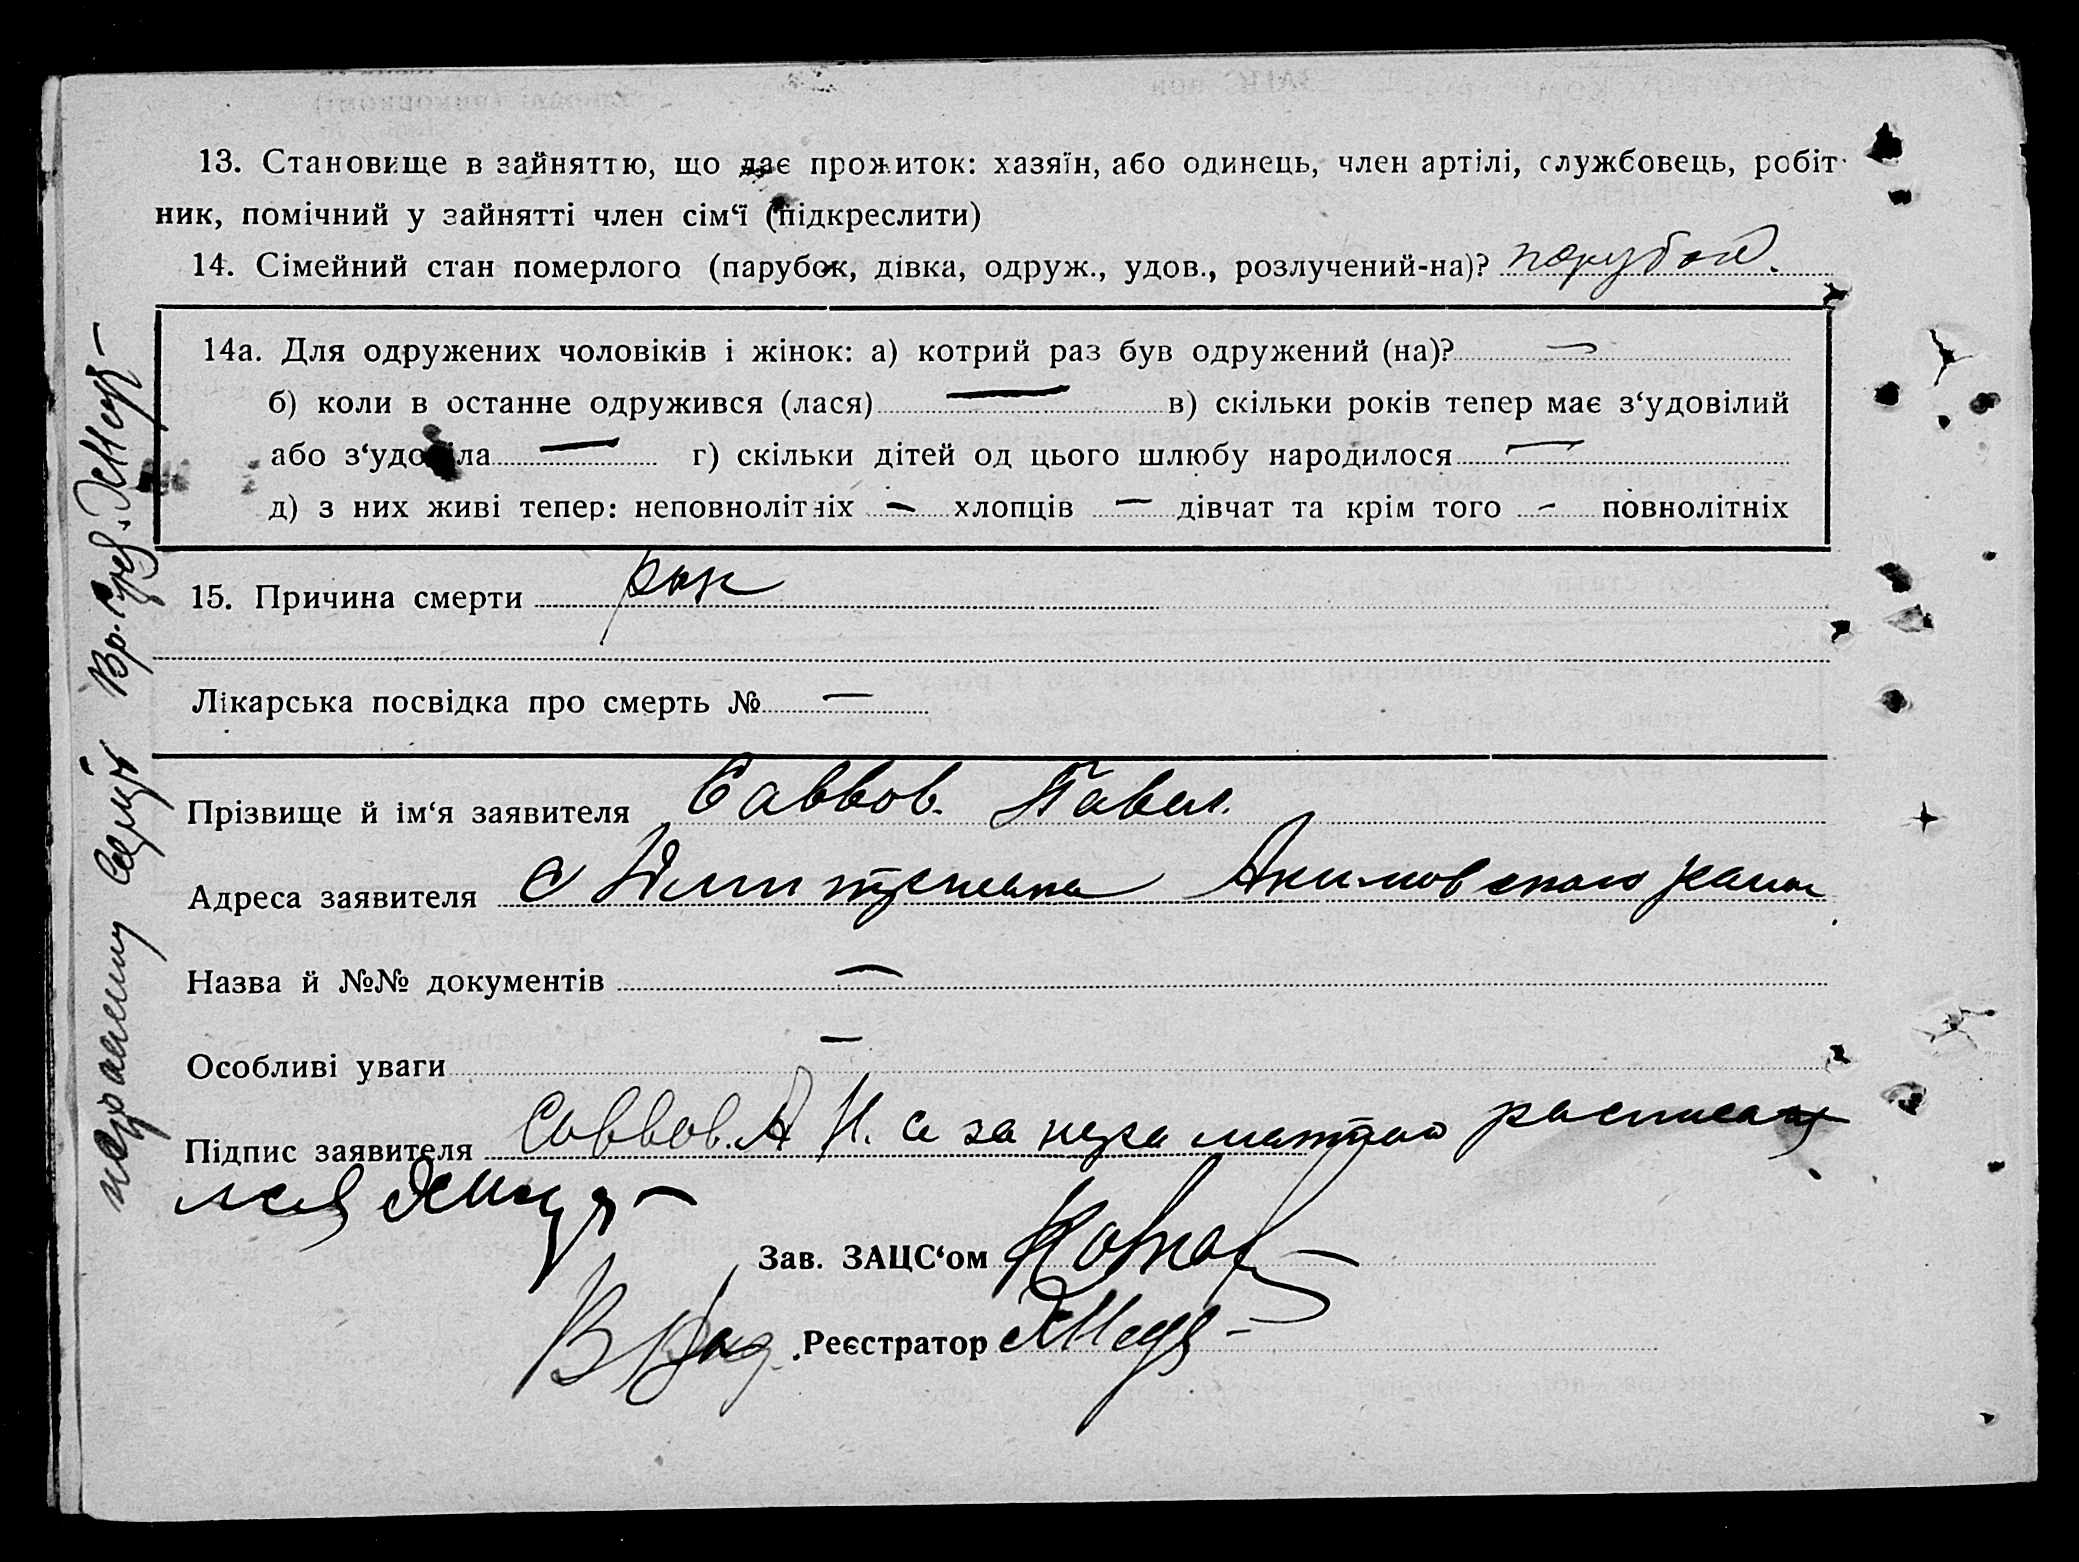 13. Становище в зайняттю, що дає прожиток: хазяїн, або одинець, член артілі, службовець, робіт-
ник, помічний у зайнятті член сім‘ї (підкреслити)
14. Сімейний стан померлого (парубок, дівка, одруж., удов., розлучений-на)?
14а. Для одружених чоловіків і жінок: а) котрий раз був одружений (на)? —
б) коли в останне одружився (лася) — в) скільки років тепер має з‘удовілий
або з‘удовіла — г) скільки дітей од цього шлюбу народилося —
д) з них живі тепер: неповнолітніх — хлопців — дівчат та крім того - повнолітніх
15. Причина смерти рак
Лікарська посвідка про смерть № —
Прізвище й ім‘я заявителя Саввов. Павел.
Адреса заявителя с Акимовского
Назва й №№ документів —
Особливі уваги —
Підпис заявителя Саввов. А Н. а за
Зав. ЗАЦС‘ом
Реєстратор